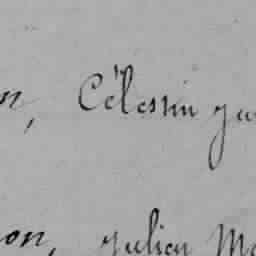 n, Célestin ju
on, julien Ma